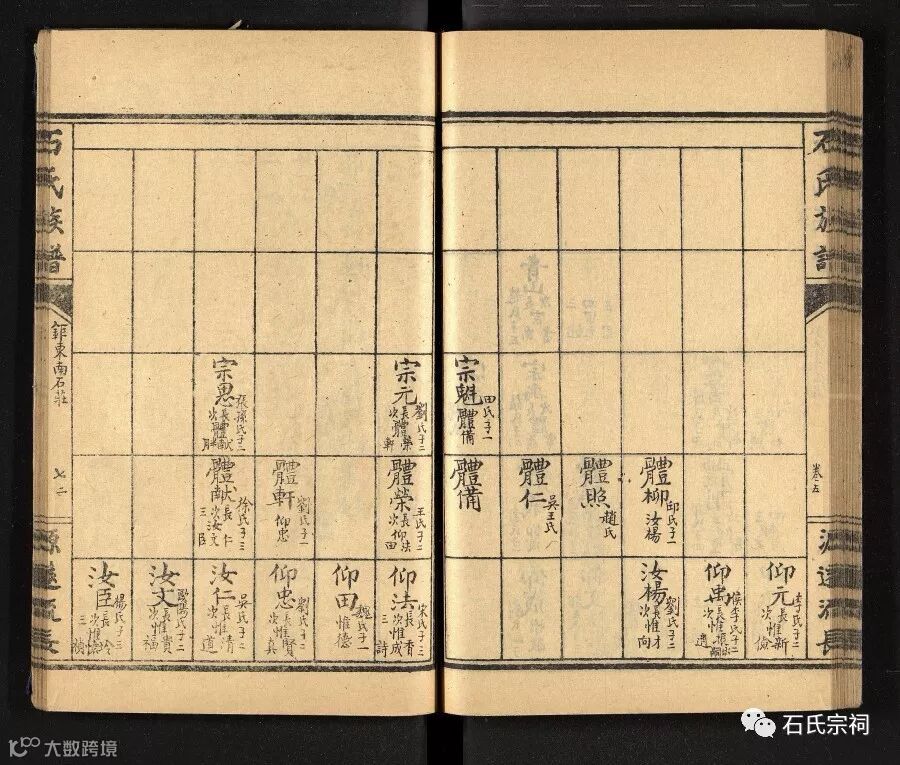 石氏族譜
卷五
源遠流長
宗魁
田氏子一
體備
體柳
邱氏子一
汝楊
體照
趙氏
體仁
吳王氏
體備
仰元
李氏子二
長惟新
次惟儉
仰禹
侯李氏子二
汝楊
劉氏子二
長惟才
次惟向
宗元
劉氏子二
長體榮
次體軒
宗思
張孫氏子二
長體献
體榮
王氏子二
長仰法
次仰田
體軒
劉氏子一
仰忠
體献
徐氏子三
長汝仁
次汝文
三汝臣
仰法
宋氏子三
長惟香
次惟成
三惟詩
仰田
魏氏子一
惟德
仰忠
劉氏子二
長惟賢
次惟真
汝仁
吳氏子二
長惟清
次惟道
汝文
歐陽氏子二
長惟貴
次惟福
汝臣
楊氏子三
石氏族譜
鉅東南石莊
七二
源遠流長
石氏宗祠
大数跨境